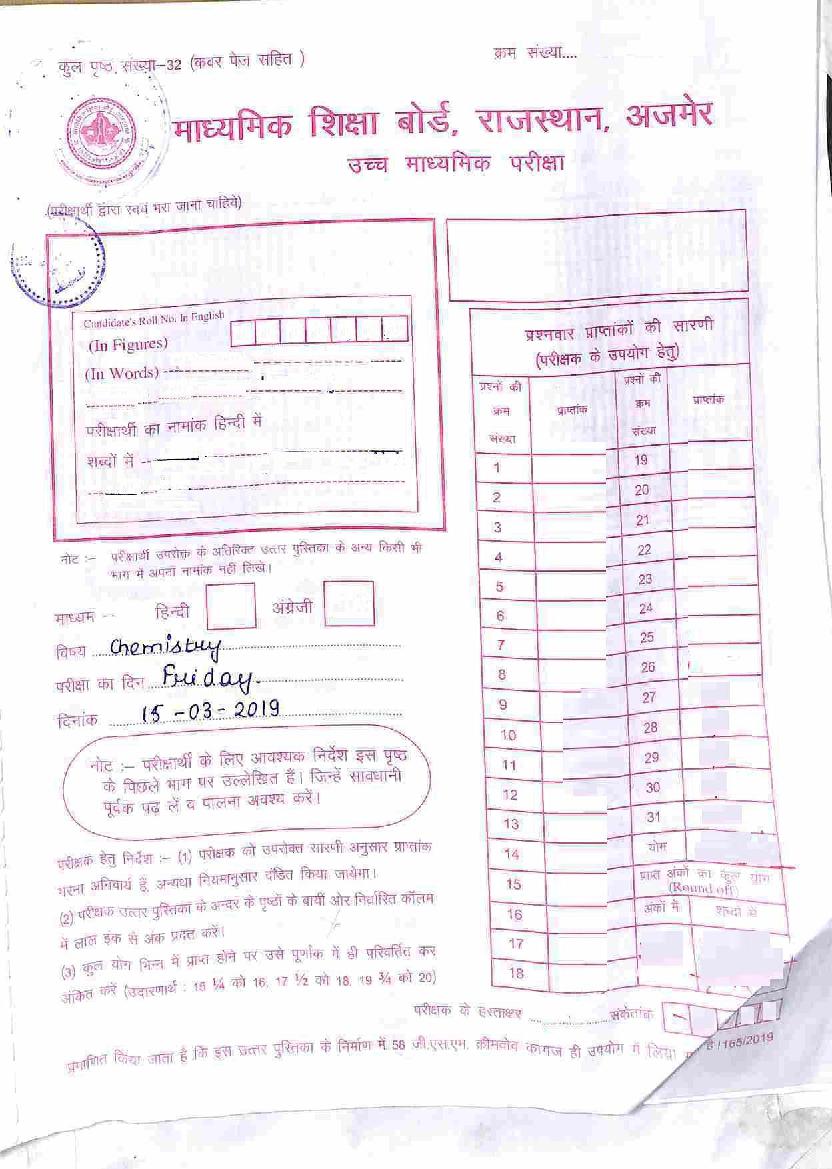 कुल पृष्ठ संख्या-32 (कवर पेज सहित )
क्रम संख्या....
माध्यमिक शिक्षा बोर्ड, राजस्थान, अजमेर
उच्च माध्यमिक परीक्षा
(परीक्षार्थी द्वारा स्वयं भरा जाना चाहिये)
Candidate's Roll No. In English
(In Figures)
(In Words)
परीक्षार्थी का नामांक हिन्दी में
शब्दों में
नोट :- परीक्षार्थी उपरोक्त के अतिरिक्त उत्तर पुस्तिका के अन्य किसी भी
भाग में अपना नामांक नहीं लिखें।
माध्यम -- हिन्दी अंग्रेजी
विषय Chemistry
परीक्षा का दिन Friday.
दिनांक 15-03-2019
नोट :- परीक्षार्थी के लिए आवश्यक निर्देश इस पृष्ठ
के पिछले भाग पर उल्लेखित हैं। जिन्हें सावधानी
पूर्वक पढ़ लें व पालना अवश्य करें।
परीक्षक हेतु निर्देश :- (1) परीक्षक को उपरोक्त सारणी अनुसार प्राप्तांक
भरना अनिवार्य हैं, अन्यथा नियमानुसार दंडित किया जायेगा।
(2) परीक्षक उत्तर पुस्तिका के अन्दर के पृष्ठों के बायीं ओर निर्धारित कॉलम
में लाल इंक से अंक प्रदत्त करें।
(3) कुल योग भिन्न में प्राप्त होने पर उसे पूर्णांक में ही परिवर्तित कर
अंकित करें (उदारणार्थ : 15 ¼ को 16, 17 ½ को 18, 19 ¾ को 20)
प्रश्नवार प्राप्तांकों की सारणी
(परीक्षक के उपयोग हेतु)
प्रश्नों की क्रम संख्या प्राप्तांक प्रश्नों की क्रम संख्या प्राप्तांक
1 19
2 20
3 21
4 22
5 23
6 24
7 25
8 26
9 27
10 28
11 29
12 30
13 31
14 योग
15 प्राप्त अंकों का कुल योग (Round off)
16 अंकों में शब्दों में
17
18
परीक्षक के हस्ताक्षर संकेतांक
प्रमाणित किया जाता है कि इस उत्तर पुस्तिका के निर्माण में 58 जी.एस.एम. क्रीमवोव कागज ही उपयोग में लिया
165/2019